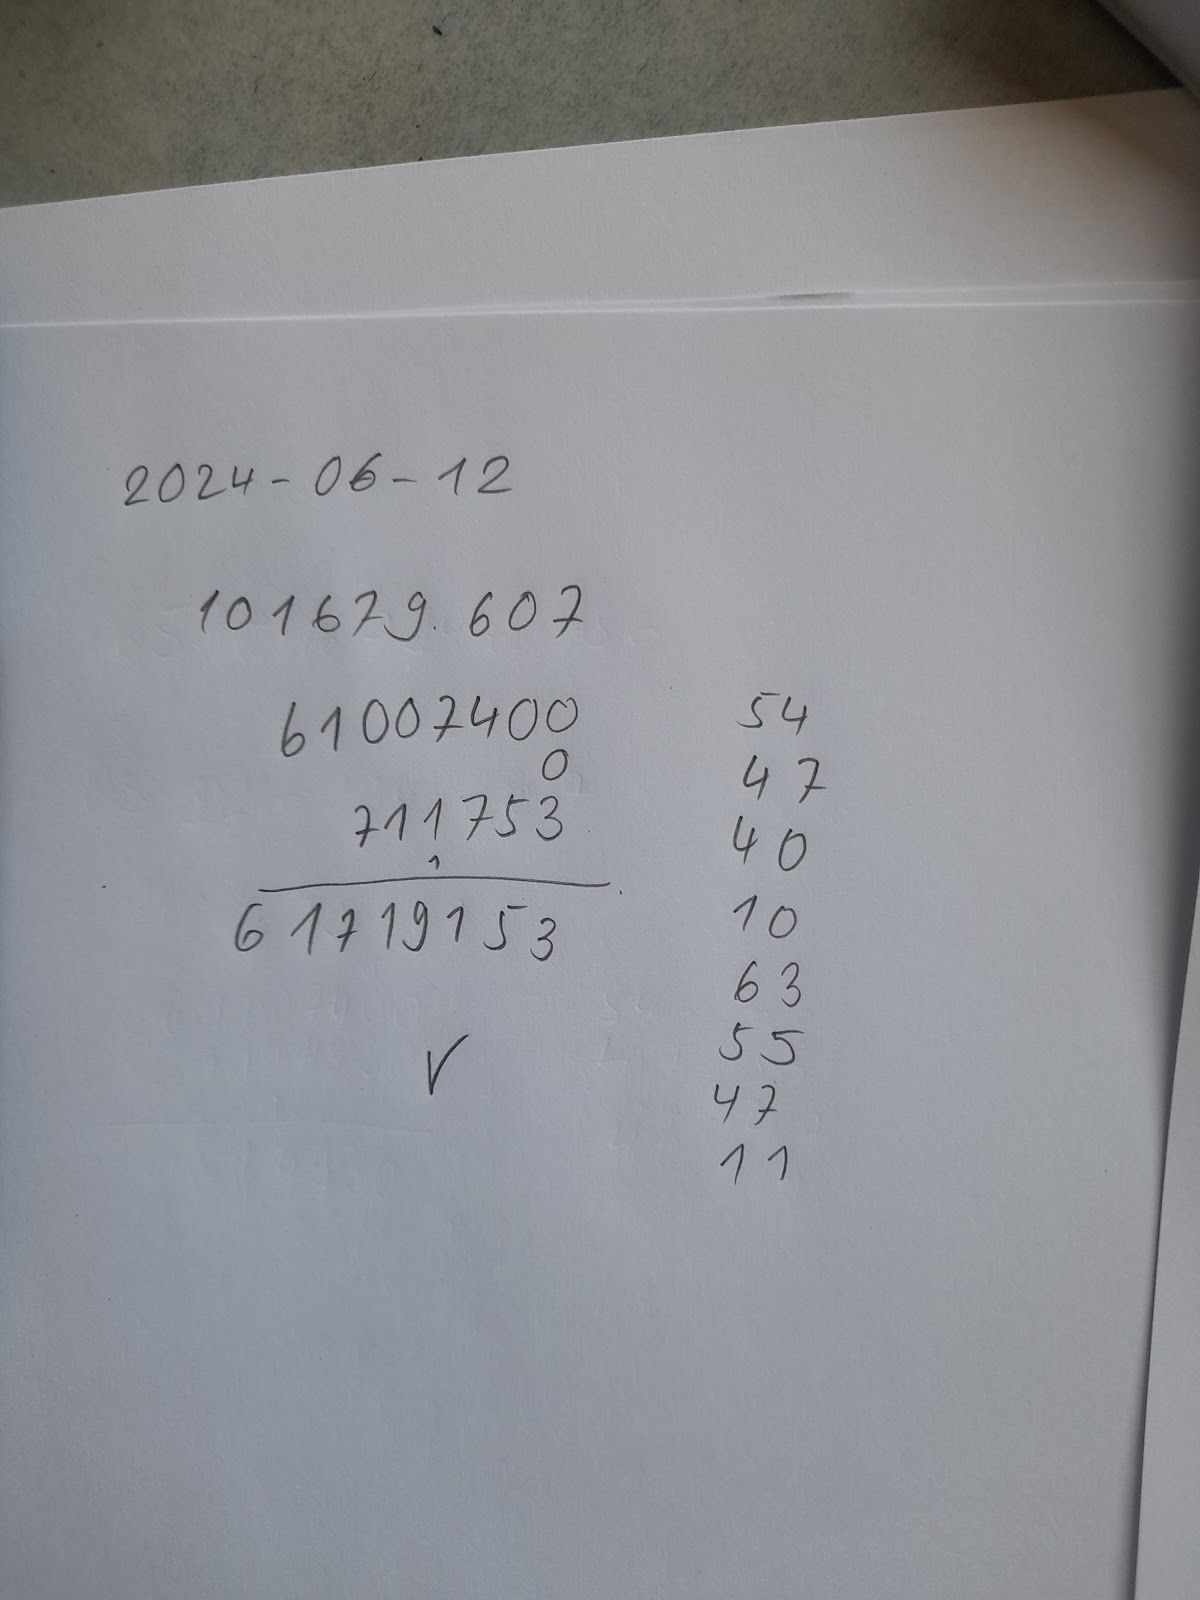 2024-06-12
101679.607
61007400
0
711753
1
61719153
√
54
47
40
10
63
55
47
11